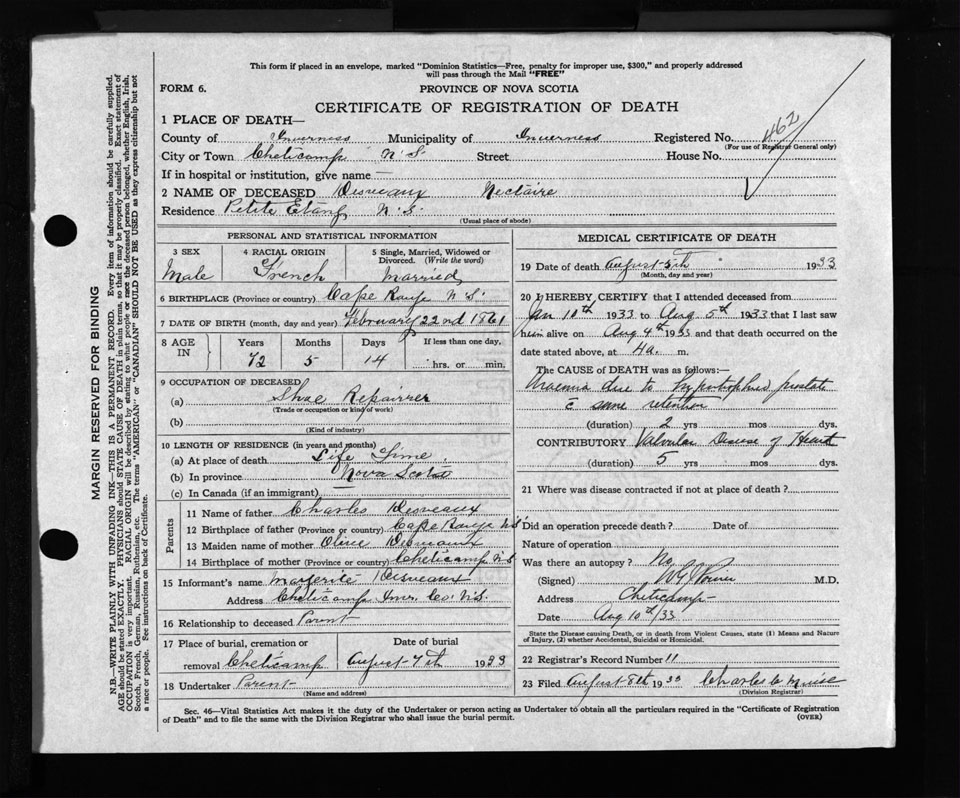 This form if placed in an envelope, marked "Dominion Statistics—Free, penalty for improper use, $300," and properly addressed
will pass through the Mail "FREE"
FORM 6.
PROVINCE OF NOVA SCOTIA
CERTIFICATE OF REGISTRATION OF DEATH
1 PLACE OF DEATH—
County of Inverness Municipality of Inverness Registered No. 462
(For use of Registrar General only)
City or Town Cheticamp N.S. Street House No.
If in hospital or institution, give name —
2 NAME OF DECEASED Desveaux Nectaire
Residence Petite Etang N.S.
(Usual place of abode)
PERSONAL AND STATISTICAL INFORMATION
3 SEX 4 RACIAL ORIGIN 5 Single, Married, Widowed or
Divorced. (Write the word)
Male French Married
6 BIRTHPLACE (Province or country) Cape Rouge N.S.
7 DATE OF BIRTH (month, day and year) February 22nd 1861
8 AGE IN Years Months Days If less than one day,
72 5 14 hrs. or min.
9 OCCUPATION OF DECEASED
(a) Shoe Repairrer
(Trade or occupation or kind of work)
(b)
(Kind of industry)
10 LENGTH OF RESIDENCE (in years and months)
(a) At place of death Life Time
(b) In province Nova Scotia
(c) In Canada (if an immigrant) —
Parents
11 Name of father Charles Desveaux
12 Birthplace of father (Province or country) Cape Rouge N.S.
13 Maiden name of mother Olive
14 Birthplace of mother (Province or country) Cheticamp N.S.
15 Informant's name Marguerite Desveaux
Address Cheticamp Inv. Co. N.S.
16 Relationship to deceased Parent
17 Place of burial, cremation or Date of burial
removal Cheticamp August 7th 1933
18 Undertaker Parent
(Name and address)
MEDICAL CERTIFICATE OF DEATH
19 Date of death August 5th 1933
(Month, day and year)
20 I HEREBY CERTIFY that I attended deceased from
Jan 10th 1933 to Aug 5th 1933 that I last saw
him alive on Aug 4th 1933 and that death occurred on the
date stated above, at 4 a. m.
The CAUSE of DEATH was as follows:—
Uraemia due to Hypertrophied prostate
c̄ urine retention
(duration) 2 yrs mos dys.
CONTRIBUTORY Valvular Disease of Heart
(duration) 5 yrs mos dys.
21 Where was disease contracted if not at place of death?
Did an operation precede death? Date of
Nature of operation
Was there an autopsy? No
(Signed) M.D.
Address Cheticamp
Date Aug 10th/33
State the Disease causing Death, or in death from Violent Causes, state (1) Means and Nature
of Injury, (2) whether Accidental, Suicidal or Homicidal.
22 Registrar's Record Number 11
23 Filed August 8th 1933 Charles
(Division Registrar)
Sec. 46—Vital Statistics Act makes it the duty of the Undertaker or person acting as Undertaker to obtain all the particulars required in the "Certificate of Registration
of Death" and to file the same with the Division Registrar who shall issue the burial permit. (OVER)
MARGIN RESERVED FOR BINDING
N.B.—WRITE PLAINLY WITH UNFADING INK—THIS IS A PERMANENT RECORD. Every item of information should be carefully supplied.
AGE should be stated EXACTLY. PHYSICIANS should STATE CAUSE OF DEATH in plain terms, so that it may be properly classified. Exact statement of
OCCUPATION is very important. RACIAL ORIGIN will be described by stating to what people or race the deceased person belonged, whether English, Irish,
Scotch, French, German, Russian, Ruthenian, etc. The terms "AMERICAN" or "CANADIAN" SHOULD NOT BE USED as they express citizenship but not
a race or people. See instructions on back of Certificate.